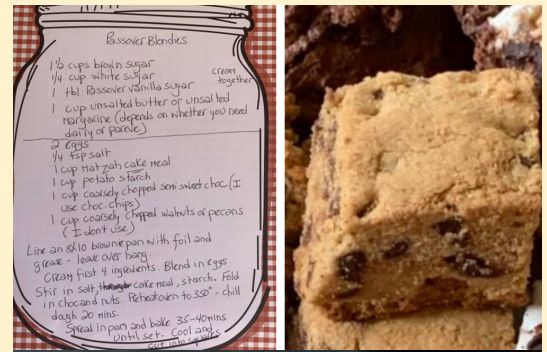 Passover Blondies
1 1/2 cups brown sugar
1/4 cup white sugar
cream together
1 tbl Passover vanilla sugar
1 cup unsalted butter or unsalted
margarine (depends on whether you need
dairy or pareve)
2 eggs
1/4 tsp salt
1 cup Matzah cake meal
1 cup potato starch
1 cup coarsely chopped semi sweet choc (I
use choc. chips)
1 cup coarsely chopped walnuts or pecans
(I dont use)
Line an 8x10 brownie pan with foil and
grease - leave over hang.
Cream first 4 ingredients. Blend in eggs.
Stir in salt, cake meal, starch. Fold
in choc and nuts. Preheat oven to 350° - chill
dough 20 mins.
Spread in pan and bake 35-40 mins
until set. Cool and
cut into squares